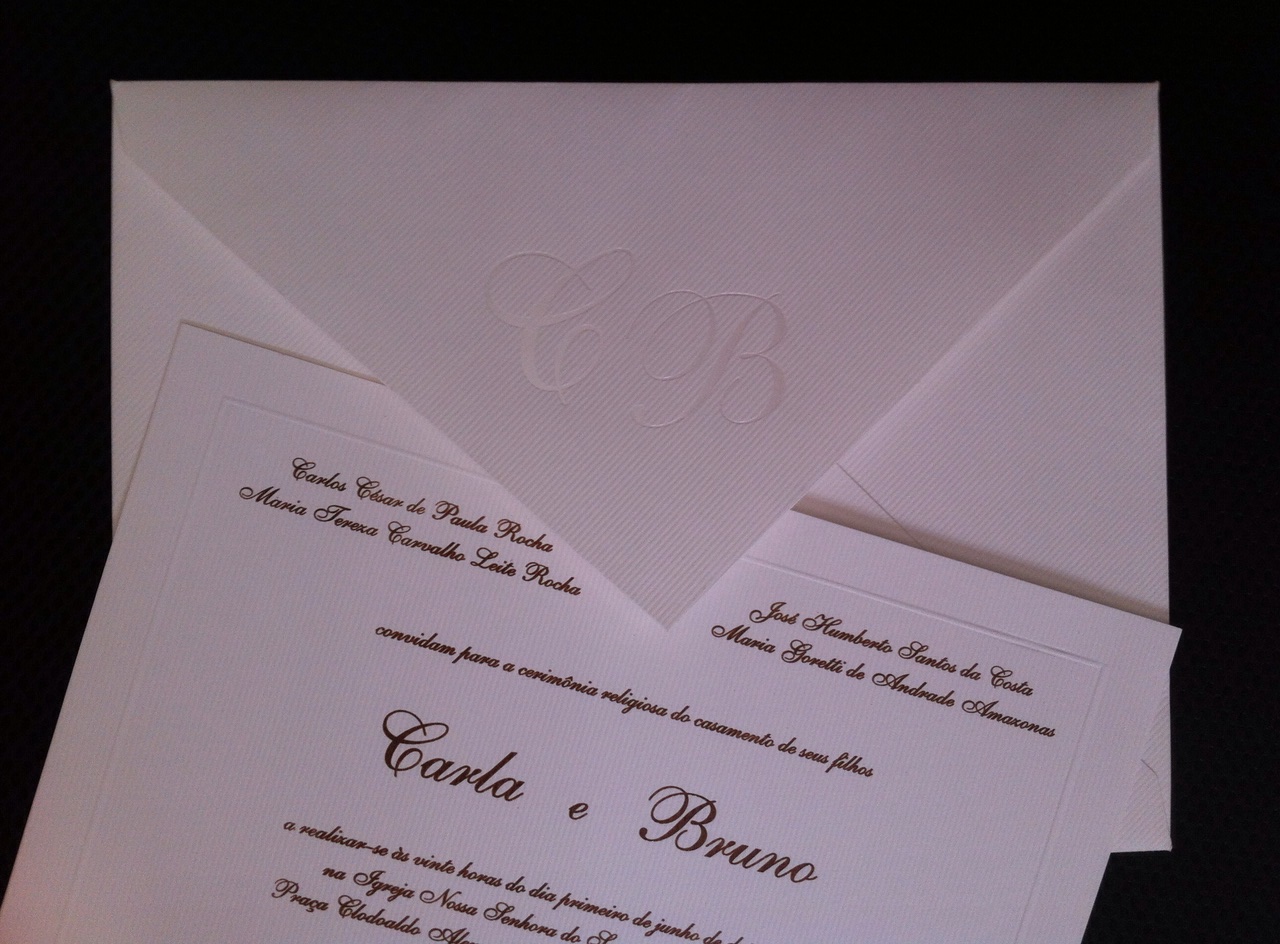 C B
Carlos César de Paula Rocha
Maria Tereza Carvalho Leite Rocha
José Humberto Santos da Costa
Maria Goretti de Andrade Amazonas
convidam para a cerimônia religiosa do casamento de seus filhos
Carla e Bruno
a realizar-se às vinte horas do dia primeiro de junho de
na Igreja Nossa Senhora do
Praça Clodoaldo